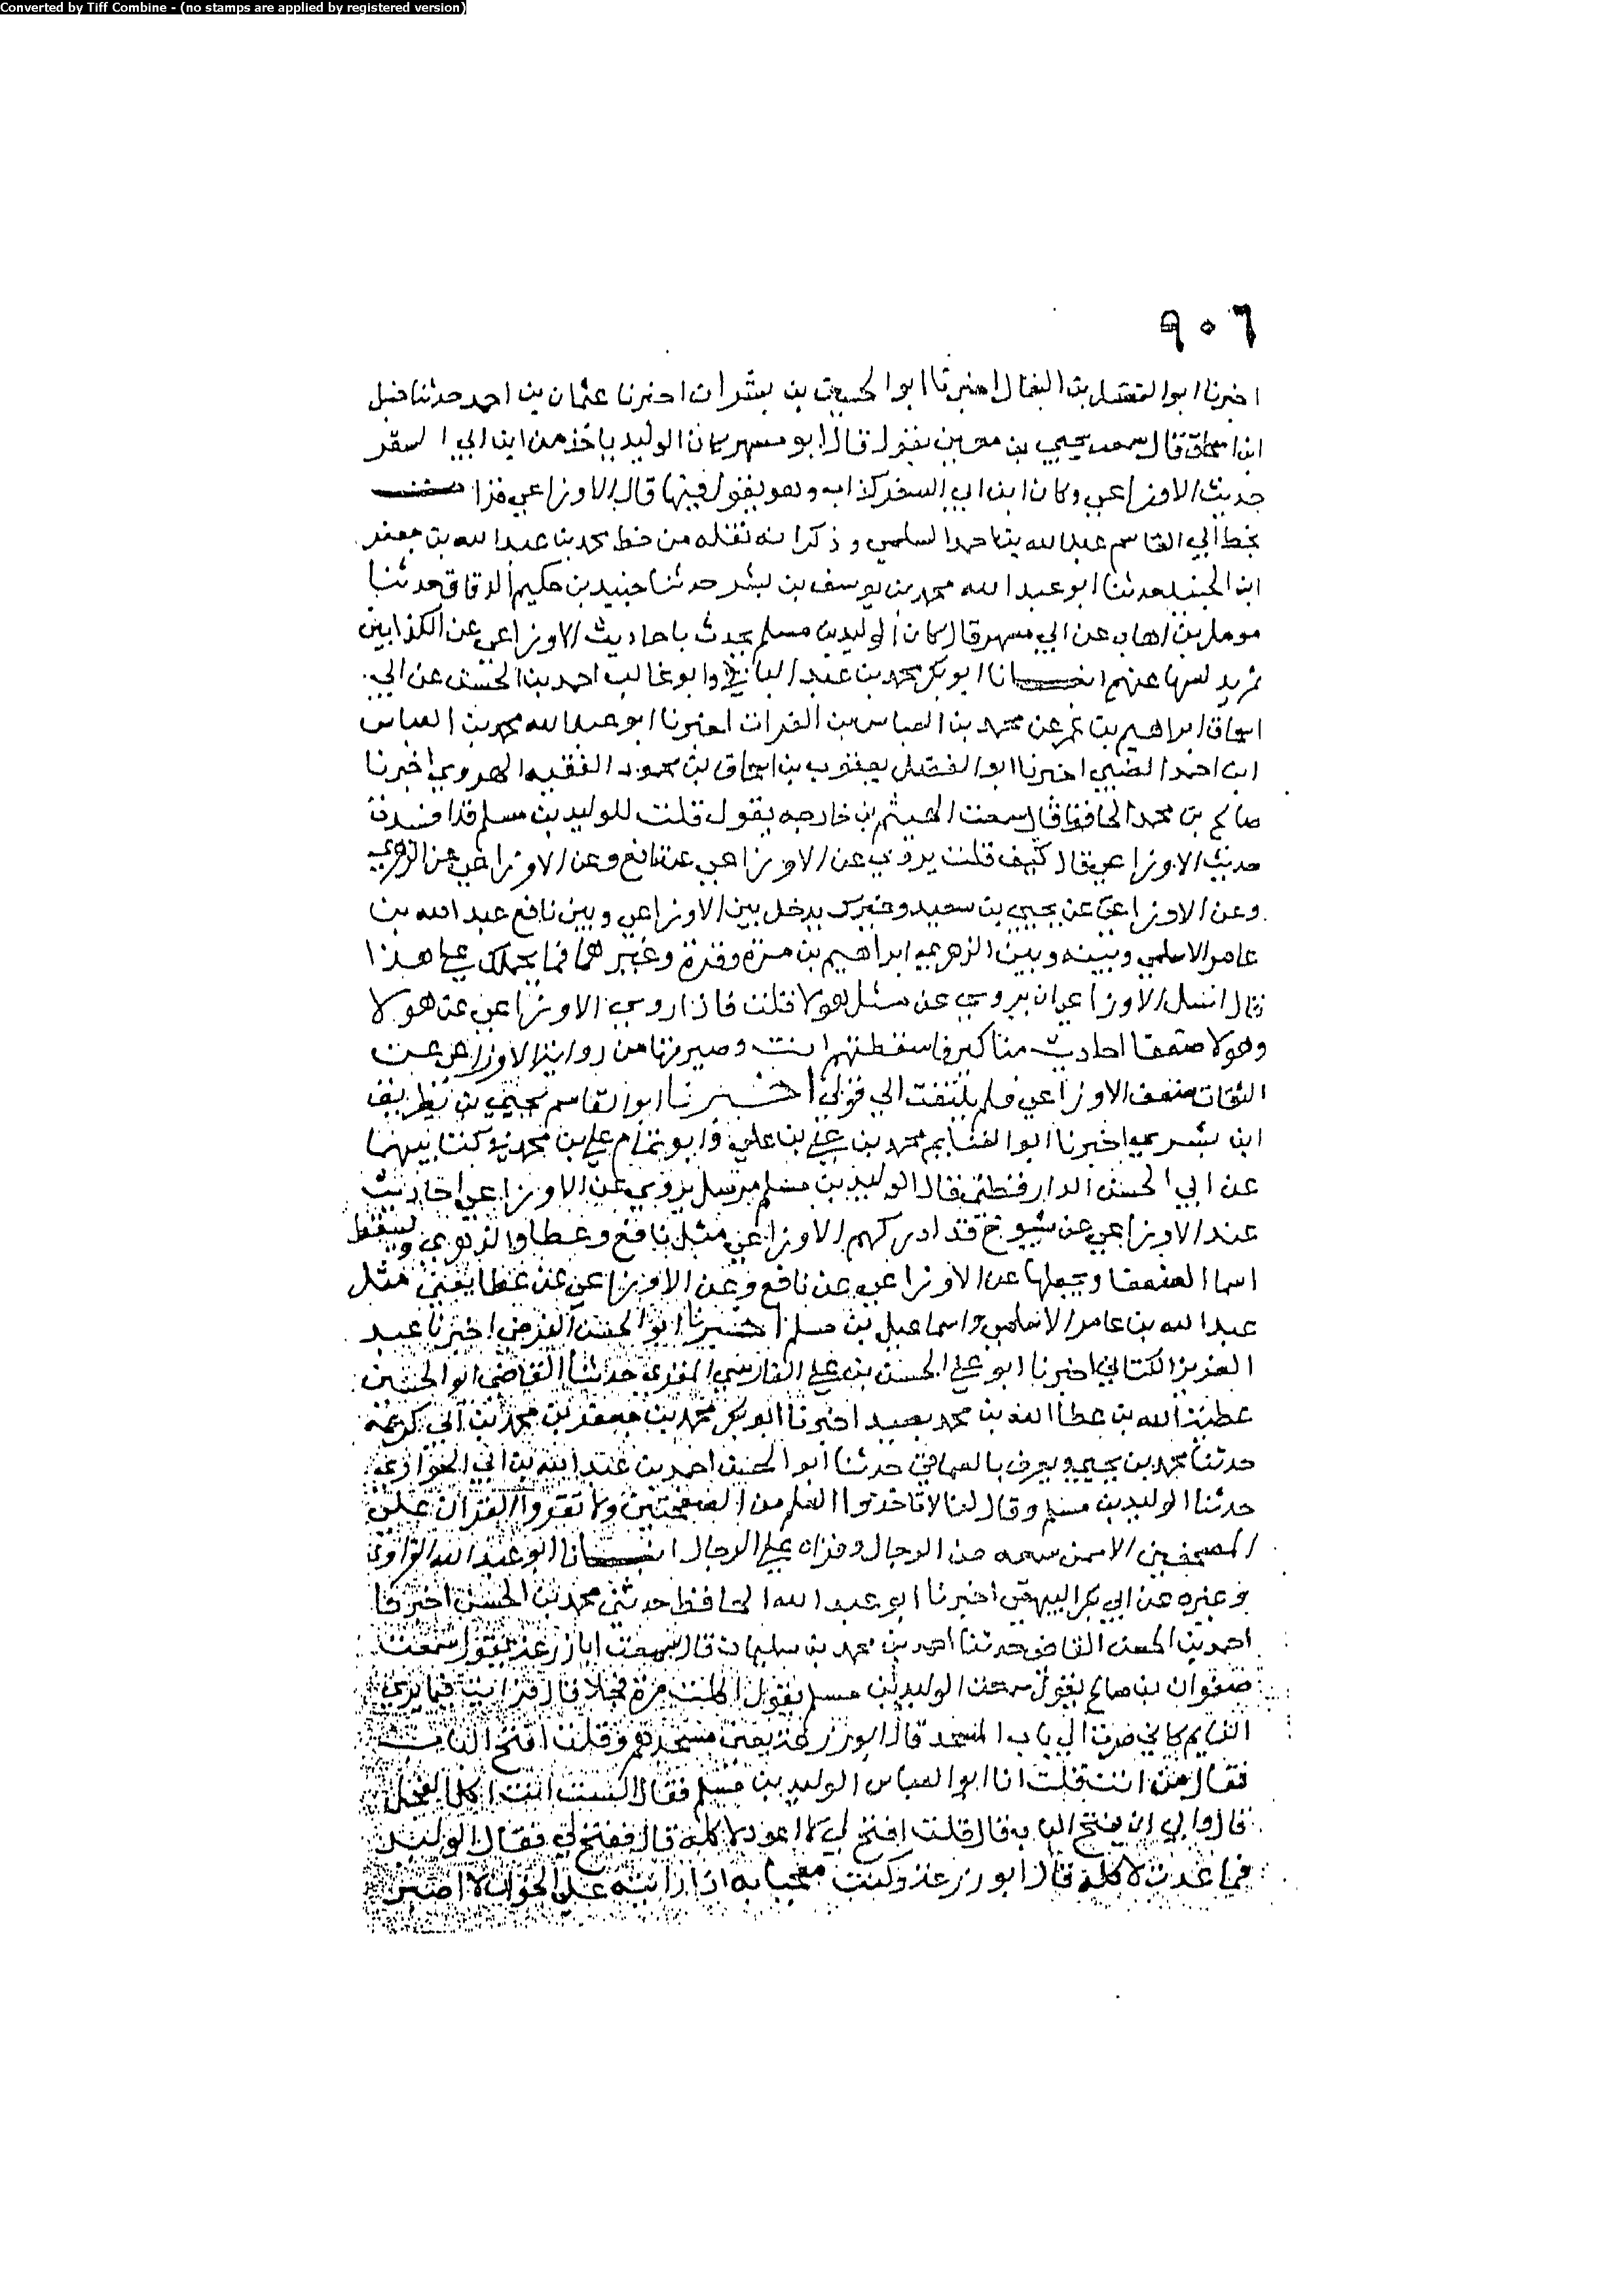 Converted by Tiff Combine - (no stamps are applied by registered version)
٩٠٦
اخبرنا ابو الفضل بن البقال اخبرنا ابو الحسين بن بشران اخبرنا عثمان بن احمد حدثنا حنبل
ابن اسحاق قال سمعت يحيي بن معين يقول قال ابو مسهر كان الوليد ياخذ من ابن ابي السفر
حديث الاوزاعي وكان ابن ابي السفر كذاب وهو يقول فيها قال الاوزاعي قرات
بخط ابي القاسم عبد الله بن احمد السلمي وذكر انه نقله من خط محمد بن عبد الله بن جعفر
ابن الجنيد حدثنا ابو عبد الله محمد بن يوسف بن بشر حدثنا جنيد بن حكيم الدقاق حدثنا
مومل بن اهاب عن ابي مسهر قال كان الوليد بن مسلم يحدث باحاديث الاوزاعي عن الكذابين
ثم يدلسها عنهم انبانا ابو بكر محمد بن عبد الباقي وابو غالب احمد بن الحسن عن ابي
اسحاق ابراهيم بن عمر عن محمد بن العباس بن الفرات اخبرنا ابو عبد الله محمد بن العباس
ابن احمد الضبي اخبرنا ابو الفضل يعقوب بن اسحاق بن محمود الفقيه الهروي اخبرنا
صالح بن محمد الحافظ قال سمعت الهيثم بن خارجه يقول قلت للوليد بن مسلم قد افسدت
حديث الاوزاعي قال كيف قلت يروي عن الاوزاعي عن نافع وعن الاوزاعي عن الزهري
وعن الاوزاعي عن يحيي بن سعيد وغيرك يدخل بين الاوزاعي وبين نافع عبد الله بن
عامر الاسلمي وبينه وبين الزهري ابراهيم بن مرة وقرة وغيرهما فما يحملك على هذا
قال انبل الاوزاعي ان يروي عن مثل هولا قلت فاذا روي الاوزاعي عن هولا
وهولا ضعفا احاديث مناكير فاسقطتهم انت وصيرتها من رواية الاوزاعي عن
الثقات ضعف الاوزاعي فلم يلتفت الي قولي اخبرنا ابو القاسم يحيي بن بطريق
ابن بشري اخبرنا ابو الغنايم محمد بن علي بن علي وابو تمام علي بن محمد في كتابيهما
عن ابي الحسن الدارقطني قال الوليد بن مسلم يرسل يروي عن الاوزاعي احاديث
عند الاوزاعي عن شيوخ قد ادركهم الاوزاعي مثل نافع وعطا والزهري ويسقط
اسما الضعفا ويجعلها عن الاوزاعي عن نافع وعن الاوزاعي عن عطا يعني مثل
عبد الله بن عامر الاسلمي واسماعيل بن مسلم اخبرنا ابو الحسن الفرضي اخبرنا عبد
العزيز الكتاني اخبرنا ابو علي الحسن بن علي الفارسي المقري حدثنا القاضي ابو الحسين
عطية الله بن عطا الله بن محمد بصيدا اخبرنا ابو بكر محمد بن جعفر بن محمد بن ابي كريمة
حدثنا محمد بن يحيي ويعرف حدثنا ابو الحسن احمد بن عبد الله بن ابي الحواري
حدثنا الوليد بن مسلم وقال لنا لا تاخذوا العلم من الصحفيين ولا تقروا القران علي
المصحفيين الا ممن سمعه من الرجال وقراه علي الرجال انبانا ابو عبد الله الفراوي
وغيره عن ابي بكر البيهقي اخبرنا ابو عبد الله الحافظ حدثني محمد بن الحسن اخبرنا
احمد بن الحسن القاضي حدثنا احمد بن محمد بن سليمان قال سمعت ابا زرعة يقول سمعت
صفوان بن صالح يقول سمعت الوليد بن مسلم يقول اكلت مرة فجلا قال فرايت فيما يري
النايم كاني صرت الي باب المسجد قال ابو زرعة يعني مسجدهم وقلت افتح الباب
فقال من انت قلت انا ابو العباس الوليد بن مسلم فقال الست انت اكل الفجل
قال وابي ان يفتح الباب قال قلت افتح لي لا اعود لاكله قال ففتح لي فقال الوليد
فما عدت لاكله قال ابو زرعة وكنت معجبا به اذا رايته علي الخوان لا اصبر